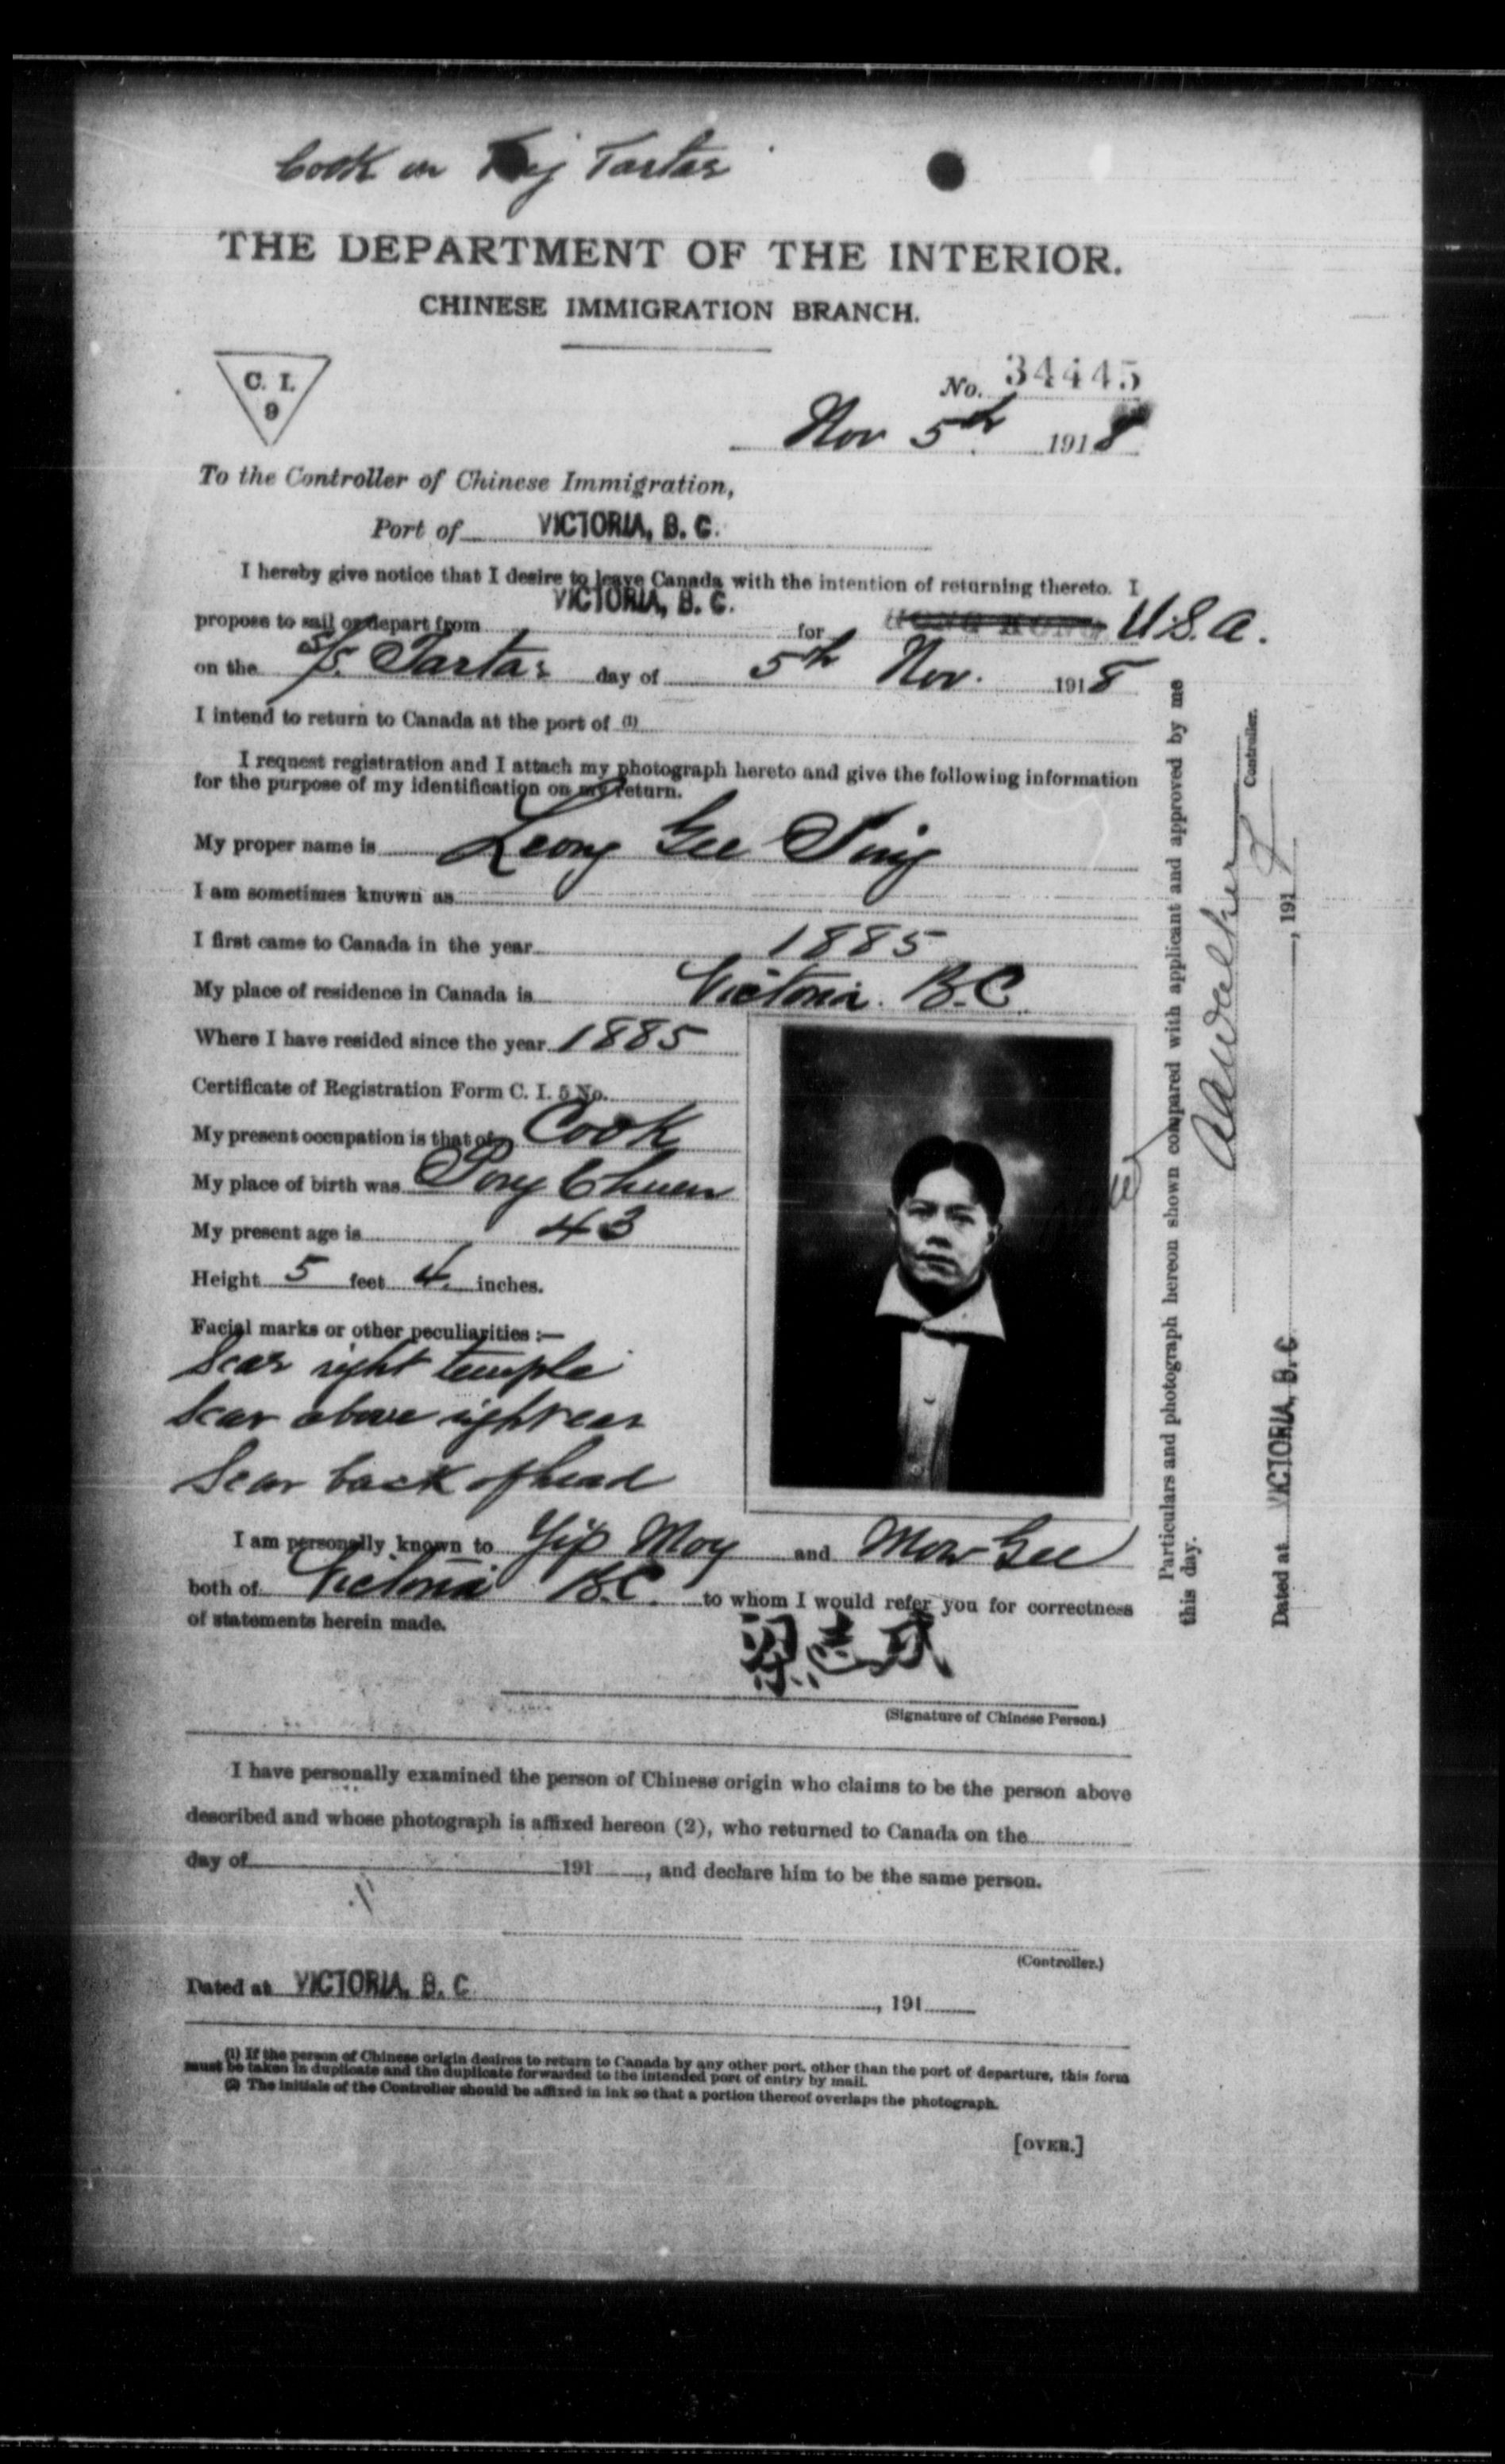 Cook on Tug Tartar
THE DEPARTMENT OF THE INTERIOR.
CHINESE IMMIGRATION BRANCH.
C. I.
9
No. 34445
Nov 5th 1918
To the Controller of Chinese Immigration,
Port of VICTORIA, B. C.
I hereby give notice that I desire to leave Canada with the intention of returning thereto. I
propose to sail or depart from VICTORIA, B. C. for HONG KONG U.S.A.
on the S/S. Tartar day of 5th Nov. 1918
I intend to return to Canada at the port of (1)
I request registration and I attach my photograph hereto and give the following information
for the purpose of my identification on my return.
My proper name is Leong Gee Sing
I am sometimes known as
I first came to Canada in the year 1885
My place of residence in Canada is Victoria. B.C.
Where I have resided since the year 1885
Certificate of Registration Form C. I. 5 No.
My present occupation is that of Cook
My place of birth was Pony Chuen
My present age is 43
Height 5 feet 4 inches.
Facial marks or other peculiarities :—
Scar right temple
Scar above right ear
Scar back of head
I am personally known to Yip Moy and Mow Gee
both of Victoria B.C. to whom I would refer you for correctness
of statements herein made.
梁志成
(Signature of Chinese Person.)
I have personally examined the person of Chinese origin who claims to be the person above
described and whose photograph is affixed hereon (2), who returned to Canada on the
day of 191 , and declare him to be the same person.
(Controller.)
Dated at VICTORIA, B. C. , 191
(1) If the person of Chinese origin desires to return to Canada by any other port, other than the port of departure, this form
must be taken in duplicate and the duplicate forwarded to the intended port of entry by mail.
(2) The initials of the Controller should be affixed in ink so that a portion thereof overlaps the photograph.
[OVER.]
Particulars and photograph hereon shown compared with applicant and approved by me
this day.
Controller.
Dated at VICTORIA, B. C , 191